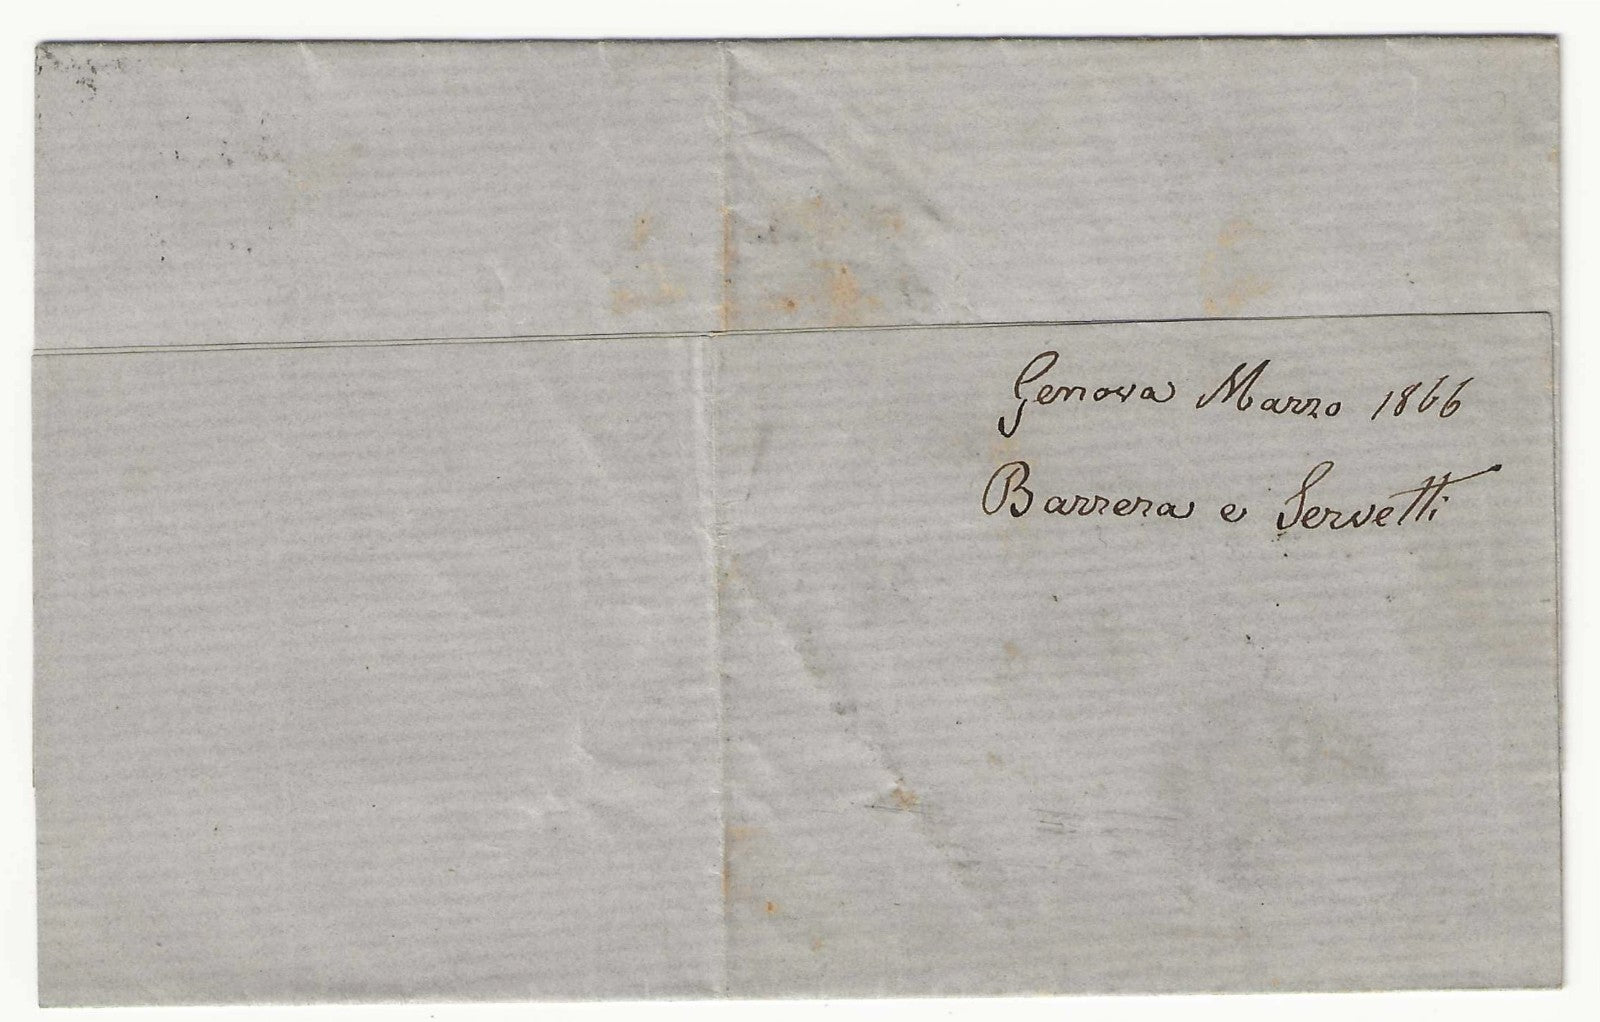 Genova Marzo 1866
Barrera e Servetti